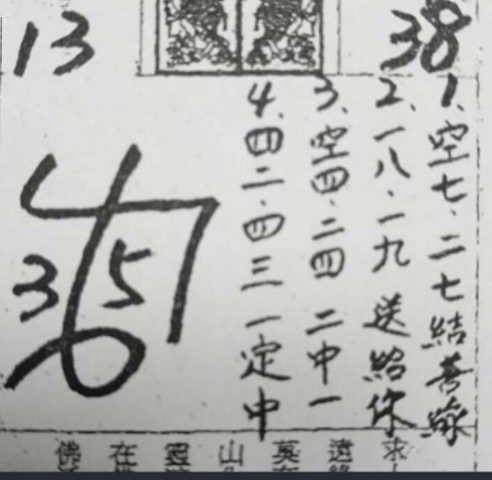 13
38
1、空七．二七結善緣
2、一八．一九送給你
3、空四．二四二中一
4、四二．四三一定中
3
5
求
莫
山
在
佛